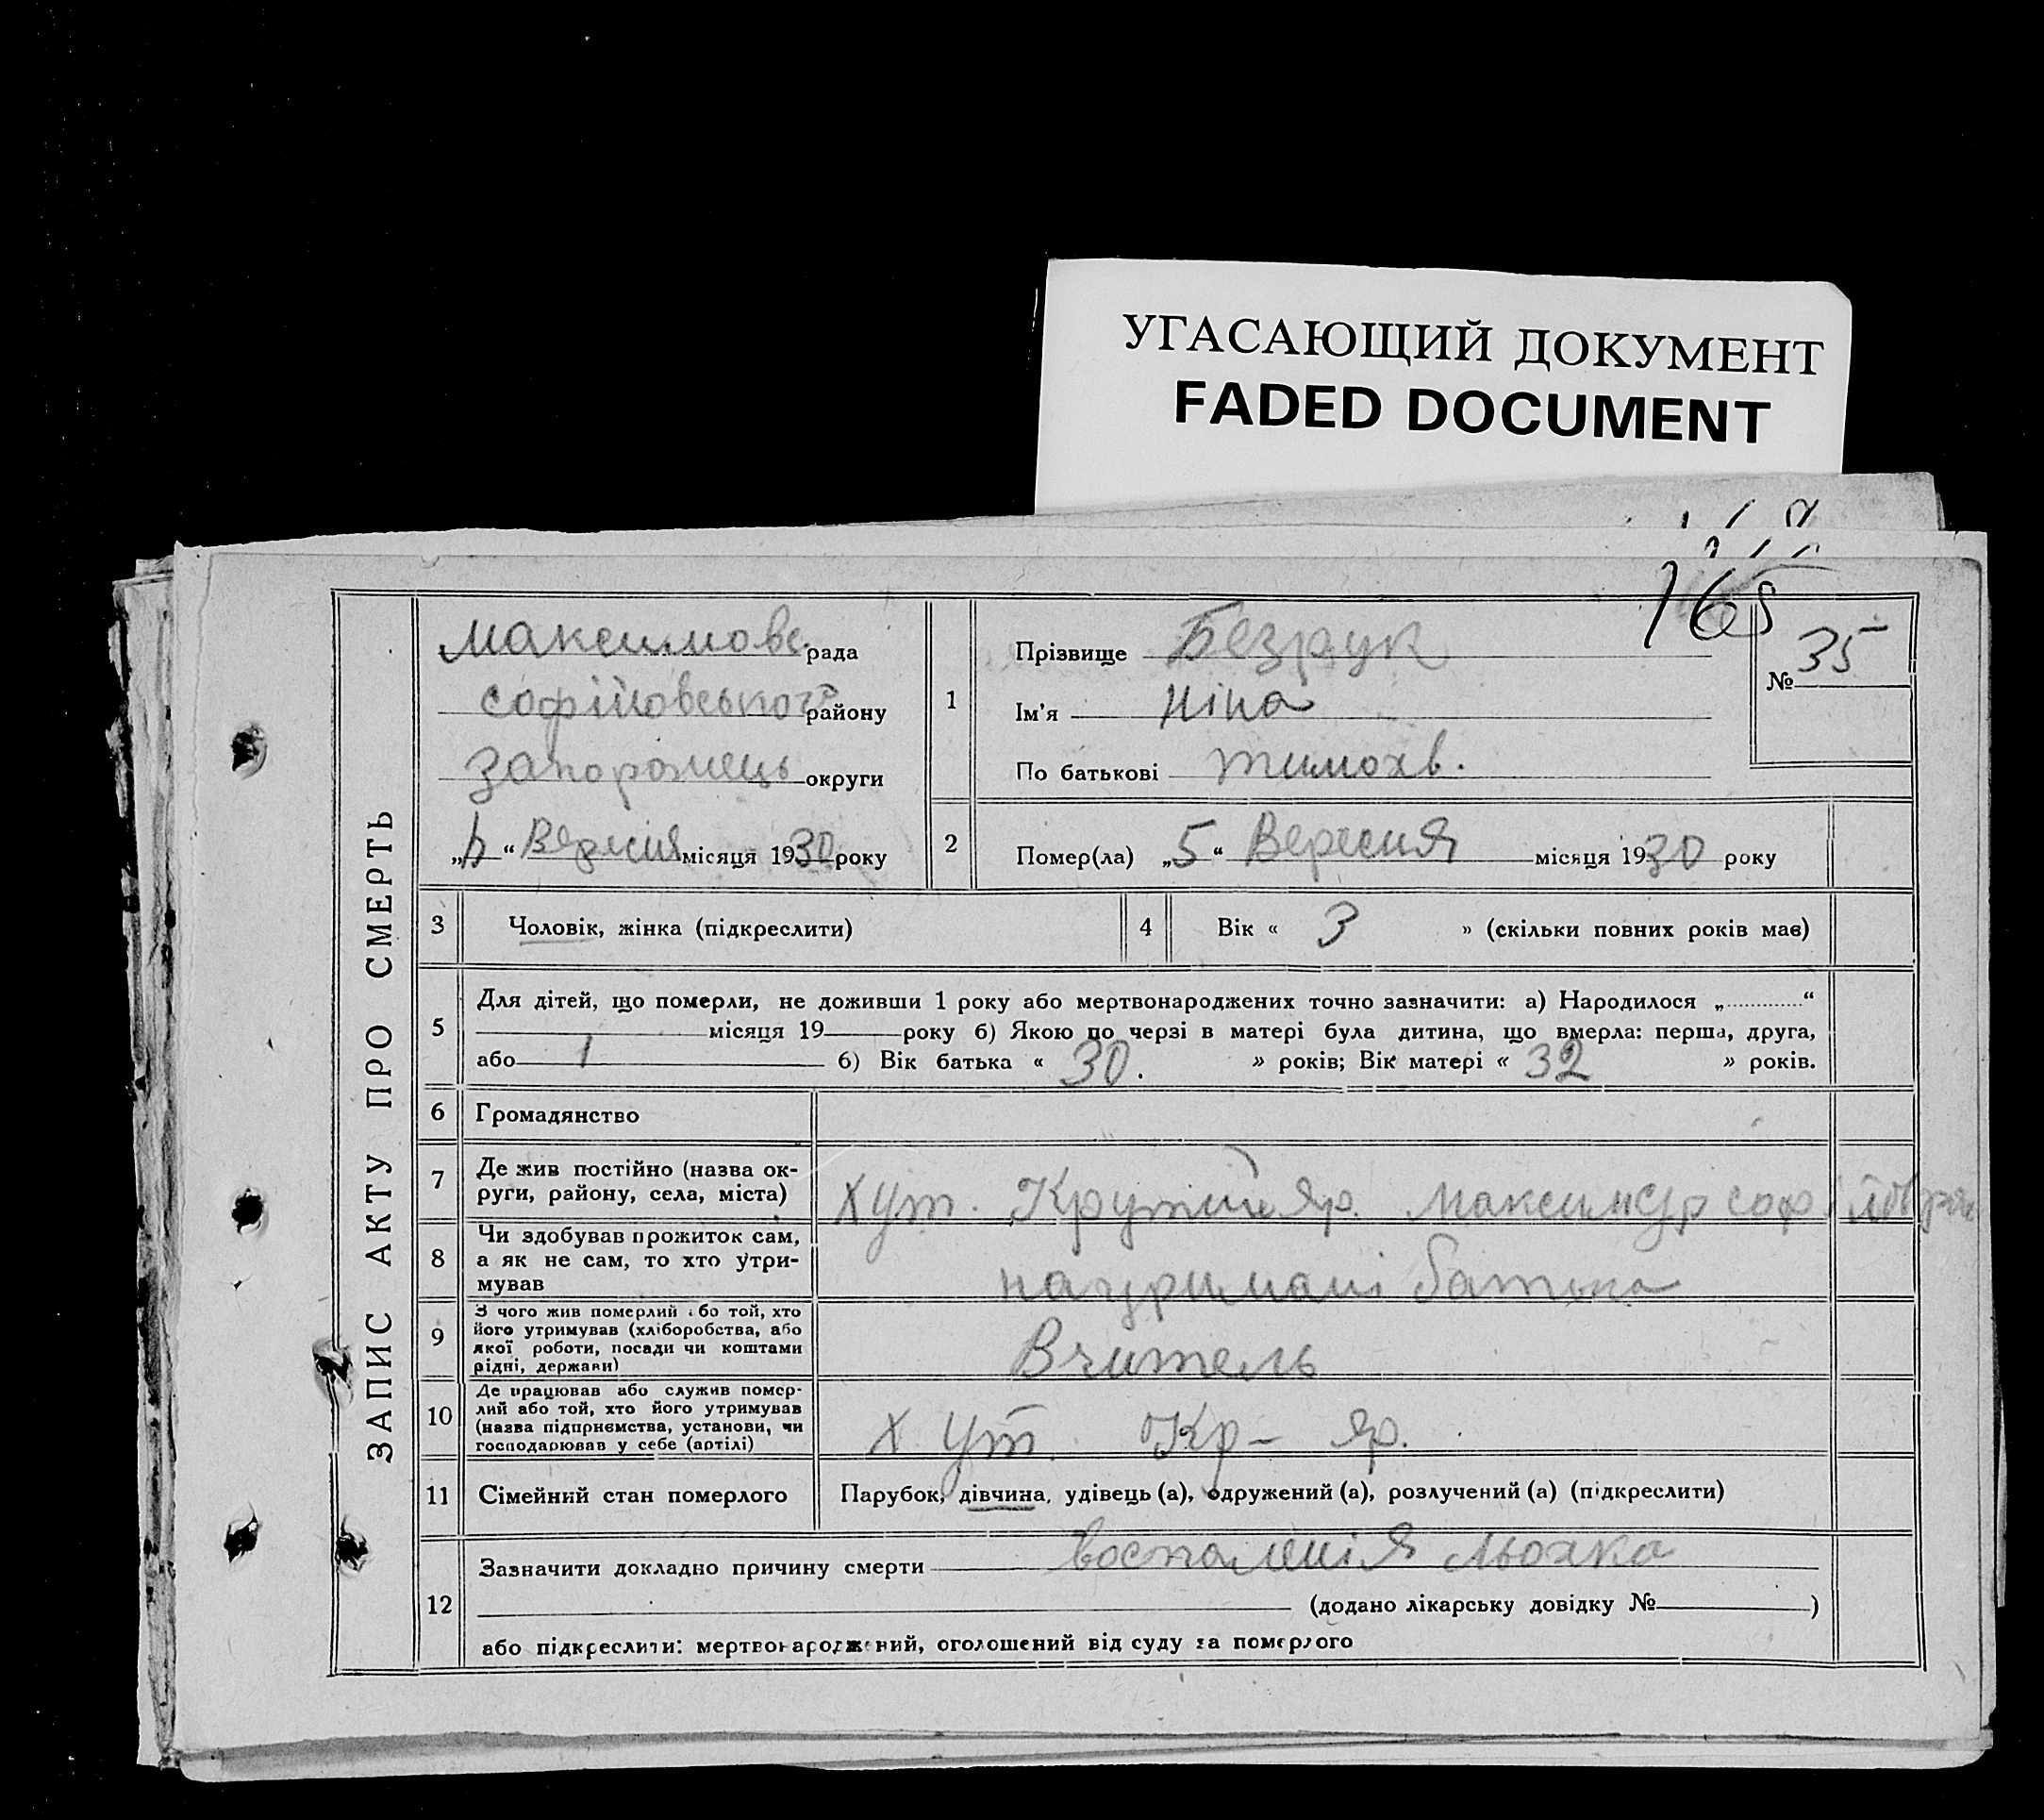 УГАСАЮЩИЙ ДОКУМЕНТ
FADED DOCUMENT
165
ЗАПИС АКТУ ПРО СМЕРТЬ
Максимовс. рада
софійовського району
запорожець округи
„ “ Вересня місяця 1930 року
1
Прізвище Безрук
Ім'я Ніна
По батькові тимохв.
№ 35
2
Помер(ла) „5“ Вересня місяця 1930 року
3 Чоловік, жінка (підкреслити)
4 Вік « 3 » (скільки повних років має)
5
Для дітей, що померли, не доживши 1 року або мертвонароджених точно зазначити: а) Народилося „............“
місяця 19 року б) Якою по черзі в матері була дитина, що вмерла: перша, друга,
або 1 б) Вік батька « 30. » років; Вік матері « 32 » років.
6 Громадянство
7
Де жив постійно (назва ок-
руги, району, села, міста)
хут. Крутий яр.
8
Чи здобував прожиток сам,
а як не сам, то хто утри-
мував
батька
9
З чого жив померлий або той, хто
його утримував (хліборобства, або
якої роботи, посади чи коштами
рідні, держави)
Вчитель
10
Де працював або служив помер-
лий або той, хто його утримував
(назва підприємства, установи, чи
господарював у себе (артілі)
хут. Кр- яр.
11 Сімейний стан померлого
Парубок, дівчина, удівець (а), одружений (а), розлучений (а) (підкреслити)
12
Зазначити докладно причину смерти воспаленія льохка
(додано лікарську довідку № )
або підкреслити: мертвонароджений, оголошений від суду за померлого